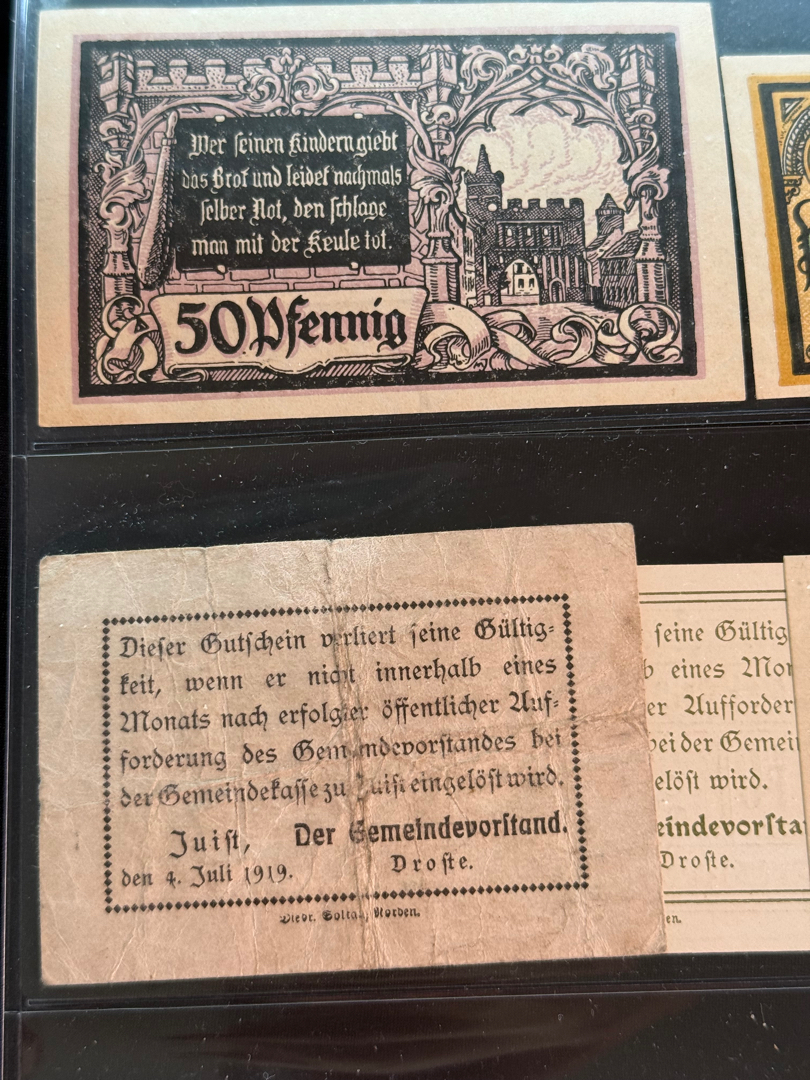 Wer seinen Kindern giebt
das Brot und leidet nachmals
selber Not, den schlage
man mit der Keule tot.
50 Pfennig
Dieser Gutschein verliert seine Gültig-
keit, wenn er nicht innerhalb eines
Monats nach erfolgter öffentlicher Auf-
forderung des Gemeindevorstandes bei
der Gemeindekasse zu Juist eingelöst wird.
Juist, Der Gemeindevorstand.
den 4. Juli 1919. Droste.
Diedr. Soltau, Norden.
seine Gültig
eines Mon
er Aufforder
bei der Gemein
elöst wird.
eindevorsta
Droste.
en.